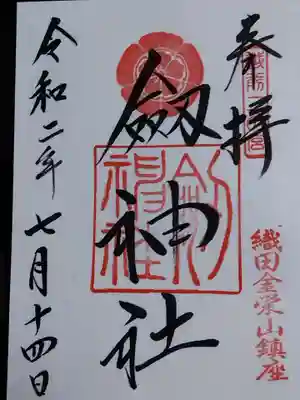 奉拝
越前二宮
織田金栄山鎮座
劔神社
劔神社
令和二年七月十四日